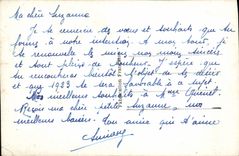 Ma chère Suzanne
Je te remercie des vœux et souhaits que tu
formes à notre intention. A mon tour, je
te renouvelle les miens, mes vœux sincères
et sont pleins de bonheur. J'espère que
tu rencontreras bientôt l'objet de tes désirs
et que 1923 te sera favorable à ce sujet.
Mes meilleurs souhaits à Mme
Reçois ma chère petite Suzanne, mes
meilleurs baisers. Ton amie qui t'aime